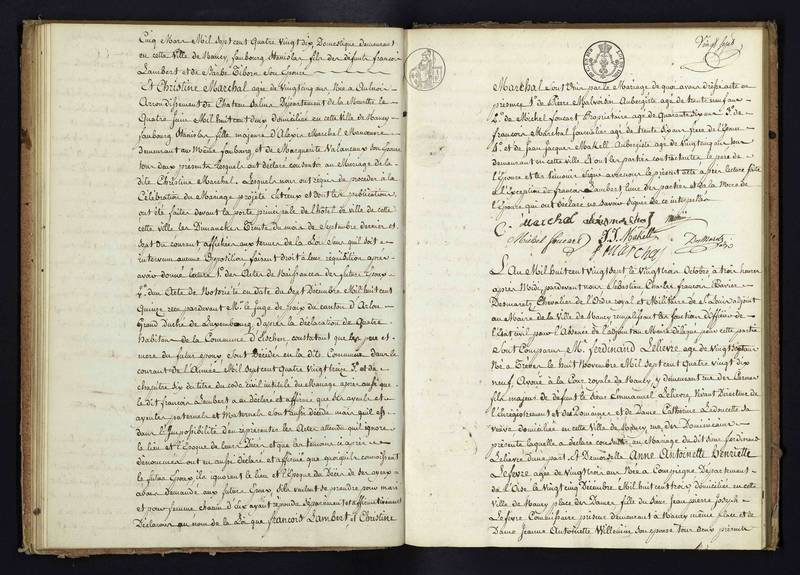 Cinq Mars Mil Sept cent Quatre Vingt dix Domestique demeurant
en cette Ville de Nancy, faubourg Stanislas fils des défunts francois
Lambert et de Barbe Son Epouse
Et Christine Marchal agée de Vingt cinq ans Née a Aulnois
Arrondissement de Chateau Salins Département de la Meurthe le
Quatre Juin Mil huit cent deux domiciliée en cette Ville de Nancy
faubourg Stanislas fille majeure d'Alexis Marchal Manoeuvre
demeurant au Même faubourg et de Marguerite Valance son Epouse
tous deux présents Lesquels ont déclaré consentir au Mariage de la
dite Christine Marchal. Lesquels nous ont requis de procéder à la
Célébration du Mariage projetté entr'eux et dont les publications
ont été faites devant la porte principale de l'hôtel de Ville de cette
cette Ville les Dimanches Trente du mois de Septembre dernier et
Sept du courant affichées aux termes de la Loi Sans qu'il soit
intervenu aucune Opposition faisant droit à leur réquisition après
avoir donné lecture 1° des Actes de Naissances des futurs Epoux
2° d'un Acte de Notoriété en date du Sept Décembre Mil huit cent
Quinze reçu pardevant Mr le Juge de paix du canton d'Arlon
Grand Duché de Luxembourg, d'après la déclaration de Quatre
habitans de la Commune d'Eischen, constatant que les père et
mère du futur époux sont Décédés en la dite Commune dans le
courant de l'Année Mil Sept cent Quatre Vingt treize 3° et du
chapitre Six du titre du code civil intitulé du Mariage après aussi que
le dit francois Lambert a déclaré et affirmé que ses ayeuls et
ayeules paternels et Maternels sont aussi décédés mais qu'il est
dans l'Impossibilité d'en représenter les Actes attendu qu'il ignore
le lieu et l'Epoque de leurs Décès et que les témoins ci après
dénommés ont en aussi déclaré et affirmé que quoiqu'ils connoissent
le futur Epoux, ils ignorent le lieu et l'Epoque du Décès de ses ayeux
avons demandé aux futurs Epoux s'ils veulent se prendre pour mari
et pour femme chacun d'eux ayant répondu séparément et affirmativement
Déclarons au nom de la Loi que francois Lambert et Christine
Vingt Sept
Marchal sont Unis par le Mariage de quoi avons dressé acte en
présence 1° de Pierre Malvoisin Aubergiste agé de trente neuf ans
2° de Michel Loucart Propriétaire agé de Quarante Six ans 3° de
francois Marchal Journalier agé de trente Six ans frère de l'Epouse
4° et de Jean Jacques Makell Aubergiste agé de Vingt cinq ans tous
demeurant en cette ville. Et ont les parties contractantes le père de
l'Epouse et les témoins signé avec nous le présent acte après lecture faite
à l'Exception de francois Lambert l'une des parties et de la Mère de
l'Epouse qui ont déclaré ne savoir signer de ce interpellés
C. Marchal alexis marchal
Michel Loucart J.J. Makell
f marchal
L'An Mil huit cent Vingt Sept le Vingt trois Octobre, à trois heures
après Midi, pardevant nous Sébastien Charles françois Xavier
Desmarets, Chevalier de l'Ordre royal et Militaire de St Louis adjoint
au Maire de la Ville de Nancy remplissant les fonctions d'Officier de
l'état civil pour l'Absence de l'adjoint au Maire délégué pour cette partie
Sont Comparus M. ferdinand Lelievre agé de Vingt huit ans
Né à Trèves le huit Novembre Mil Sept cent Quatre Vingt dix
neuf. Avoué à la Cour royale de Nancy y demeurant rue des Carmes
fils majeur de défunt le Sieur Emmanuel Lelievre, Vivant Directeur de
l'Enrégistrement et des Domaines et de Dame Catherine Ladoucette sa
veuve domiciliée en cette Ville de Nancy rue des Dominicains
présente laquelle a déclaré consentir au Mariage du dit Sieur ferdinand
Lelievre d'une part. Et Demoiselle Anne Antoinette henriette
Lefevre agée de Vingt trois ans Née a Compiegne Département
de l'Oise le Vingt cinq Décembre Mil huit cent trois domiciliée en cette
Ville de Nancy place des Dames fille du Sieur Jean pierre Joseph
Lefevre Commissaire priseur demeurant à Nancy même place et de
Dame Jeanne Antoinette Villemin son épouse tous deux présents